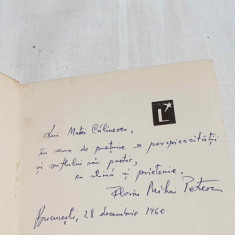 L
Lui Matei Călinescu,
în semn de prețuire a perspicacității
și sufletului său poetic,
cu stimă și prietenie,
Florin Mihai Petrescu
București, 28 decembrie 1960